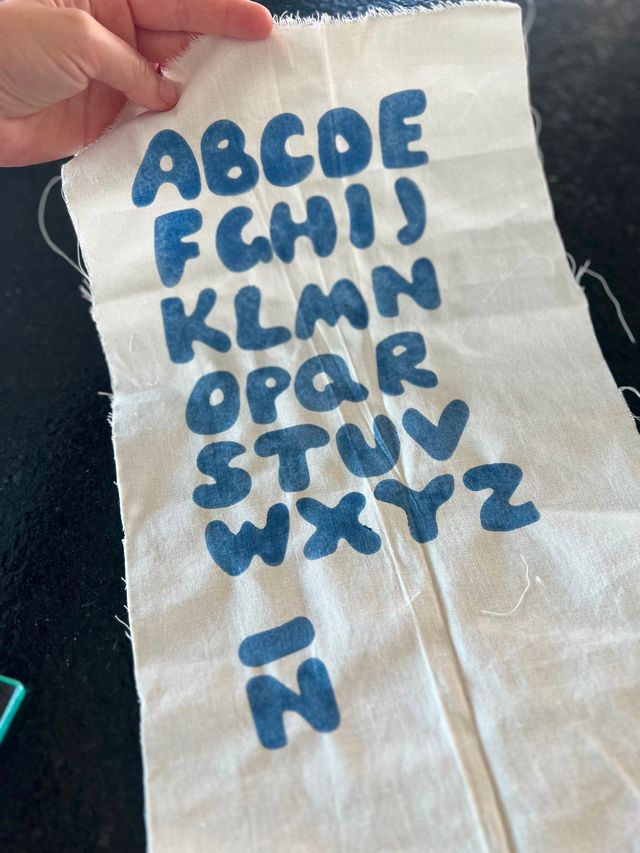 ABCDE
FGHIJ
KLMN
OPQR
STUV
WXYZ
Ñ